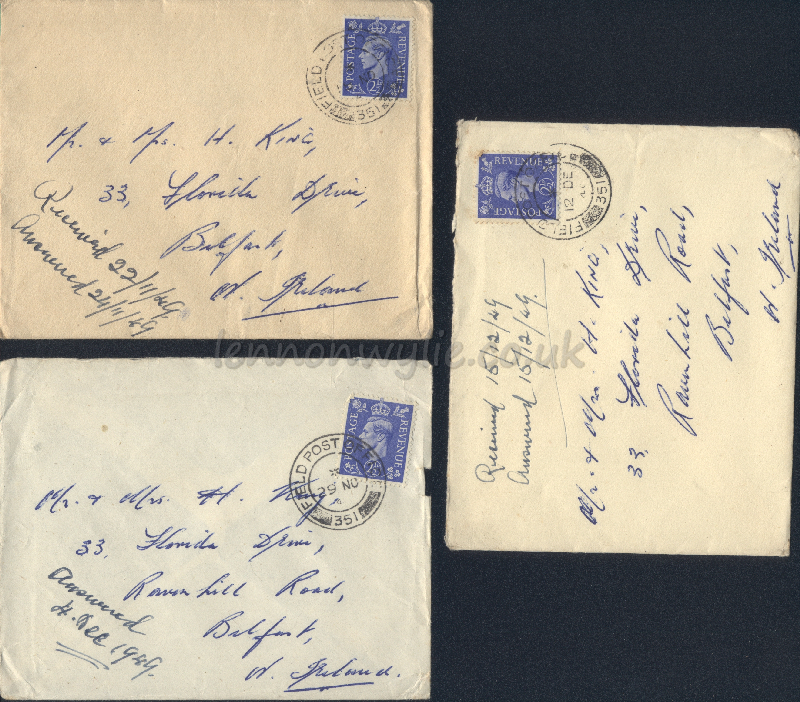 POSTAGE REVENUE
2½D
FIELD POST
351
Mr. & Mrs. H. King,
33, Florida Drive,
Belfast,
N. Ireland
Received 22/11/49
Answered 24/11/49
POSTAGE REVENUE
2½D
FIELD POST
29 NO
351
Mr. & Mrs. H. King
33, Florida Drive,
Ravenhill Road,
Belfast,
N. Ireland.
Answered
4. Dec 1949.
POSTAGE REVENUE
2½D
FIELD
12 DE
351
Mr. & Mrs. H. King,
33, Florida Drive,
Ravenhill Road,
Belfast,
N. Ireland
Received 15/12/49
Answered 15/12/49.
lennonwylie.co.uk